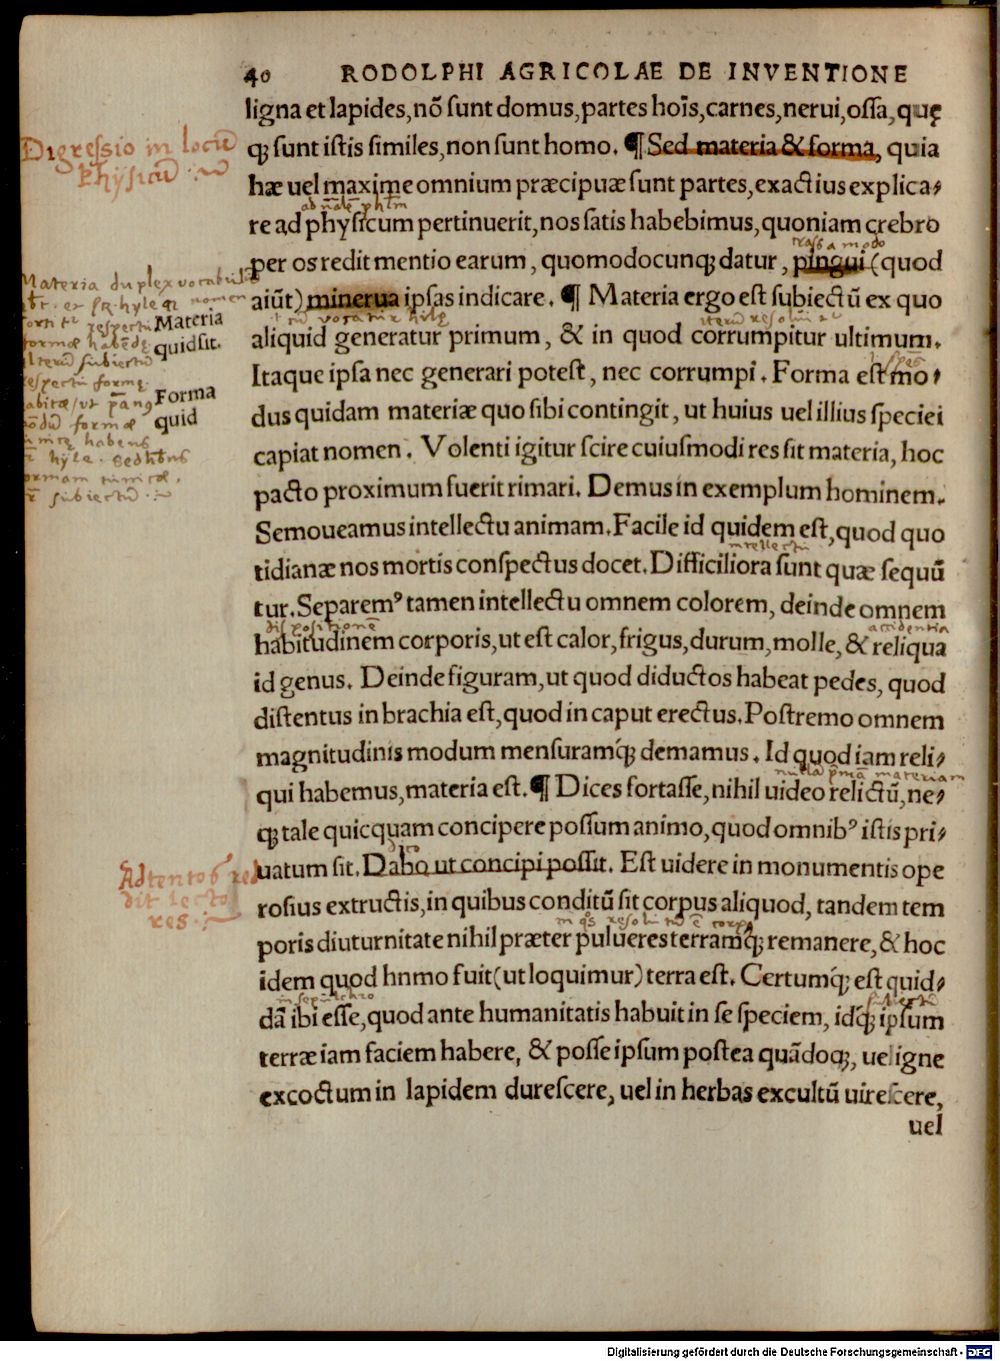 40 RODOLPHI AGRICOLAE DE INVENTIONE
ligna et lapides, nõ sunt domus, partes hoĩs, carnes, nerui, ossa, quę
q; sunt istis similes, non sunt homo. ¶ Sed materia & forma, quia
hæ uel maxime omnium præcipuæ sunt partes, exactius explica-
re ad physicum pertinuerit, nos satis habebimus, quoniam crebro
per os redit mentio earum, quomodocunq; datur, pingui (quod
aiũt) minerua ipsas indicare. ¶ Materia ergo est subiectũ ex quo
aliquid generatur primum, & in quod corrumpitur ultimum.
Itaque ipsa nec generari potest, nec corrumpi. Forma est mo-
dus quidam materiæ quo sibi contingit, ut huius uel illius speciei
capiat nomen. Volenti igitur scire cuiusmodi res sit materia, hoc
pacto proximum fuerit rimari. Demus in exemplum hominem.
Semoueamus intellectu animam. Facile id quidem est, quod quo
tidianæ nos mortis conspectus docet. Difficiliora sunt quæ sequũ
tur. Separemꝰ tamen intellectu omnem colorem, deinde omnem
habitudinem corporis, ut est calor, frigus, durum, molle, & reliqua
id genus. Deinde figuram, ut quod diductos habeat pedes, quod
distentus in brachia est, quod in caput erectus. Postremo omnem
magnitudinis modum mensuramq́; demamus. Id quod iam reli-
qui habemus, materia est. ¶ Dices fortasse, nihil uideo relictũ, ne-
q; tale quicquam concipere possum animo, quod omnibꝰ istis pri-
uatum sit. Dabo ut concipi possit. Est uidere in monumentis ope
rosius extructis, in quibus conditũ sit corpus aliquod, tandem tem
poris diuturnitate nihil præter pulueres terramq́; remanere, & hoc
idem quod hnmo fuit (ut loquimur) terra est. Certumq́; est quid-
dã ibi esse, quod ante humanitatis habuit in se speciem, idq́; ipsum
terræ iam faciem habere, & posse ipsum postea quãdoq;, uel igne
excoctum in lapidem durescere, uel in herbas excultũ uirescere,
uel
Digressio in locũ
Physicũ
Materia duplex
Materia
quid sit.
Forma
quid
subiectũ
Adtentos red
dit lecto
res
crassa modo
intellectu
dispositionẽ
accidentia
nulla materiam
in sepulchro
Digitalisierung gefördert durch die Deutsche Forschungsgemeinschaft - DFG